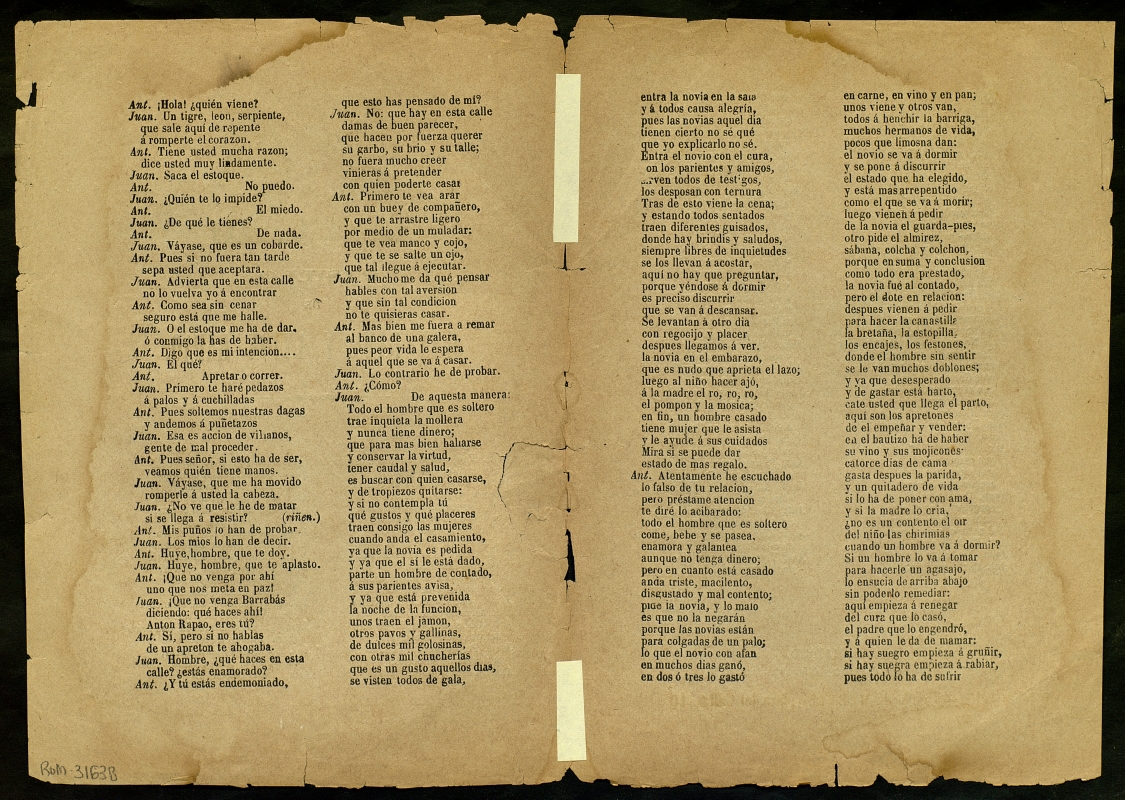 Ant. ¡Hola! ¿quién viene?
Juan. Un tigre, leon, serpiente,
que sale aquí de repente
á romperte el corazon.
Ant. Tiene usted mucha razon;
dice usted muy lindamente.
Juan. Saca el estoque.
Ant. No puedo.
Juan. ¿Quién te lo impide?
Ant. El miedo.
Juan. ¿De qué le tienes?
Ant. De nada.
Juan. Váyase, que es un cobarde.
Ant. Pues si no fuera tan tarde
sepa usted que aceptara.
Juan. Advierta que en esta calle
no lo vuelva yo á encontrar
Ant. Como sea sin cenar
seguro está que me halle.
Juan. O el estoque me ha de dar,
ó conmigo la has de haber.
Ant. Digo que es mi intencion....
Juan. El qué?
Ant. Apretar o correr.
Juan. Primero te haré pedazos
á palos y á cuchilladas
Ant. Pues soltemos nuestras dagas
y andemos á puñetazos
Juan. Esa es accion de villanos,
gente de mal proceder.
Ant. Pues señor, si esto ha de ser,
veamos quién tiene manos.
Juan. Váyase, que me ha movido
romperle á usted la cabeza.
Juan. ¿No ve que le he de matar
si se llega á resistir? (riñen.)
Ant. Mis puños lo han de probar.
Juan. Los mios lo han de decir.
Ant. Huye, hombre, que te doy.
Juan. Huye, hombre, que te aplasto.
Ant. ¡Que no venga por ahí
uno que nos meta en paz!
Juan. ¡Que no venga Barrabás
diciendo: qué haces ahí!
Anton Rapao, eres tú?
Ant. Sí, pero si no hablas
de un apreton te ahogaba.
Juan. Hombre, ¿qué haces en esta
calle? ¿estás enamorado?
Ant. ¿Y tú estás endemoniado,
que esto has pensado de mí?
Juan. No: que hay en esta calle
damas de buen parecer,
que hacen por fuerza querer
su garbo, su brio y su talle;
no fuera mucho creer
vinieras á pretender
con quien poderte casar
Ant. Primero te vea arar
con un buey de compañero,
y que te arrastre ligero
por medio de un muladar:
que te vea manco y cojo,
y que te se salte un ojo,
que tal llegue á ejecutar.
Juan. Mucho me da qué pensar
hables con tal aversion
y que sin tal condicion
no te quisieras casar.
Ant. Mas bien me fuera a remar
al banco de una galera,
pues peor vida le espera
á aquel que se va á casar.
Juan. Lo contrario he de probar.
Ant. ¿Cómo?
Juan. De aquesta manera:
Todo el hombre que es soltero
trae inquieta la mollera
y nunca tiene dinero;
que para mas bien hallarse
y conservar la virtud,
tener caudal y salud,
es buscar con quien casarse,
y de tropiezos quitarse:
y si no contempla tú
qué gustos y qué placeres
traen consigo las mujeres
cuando anda el casamiento,
ya que la novia es pedida
y ya que el sí le está dado,
parte un hombre de contado,
á sus parientes avisa,
y ya que está prevenida
la noche de la funcion,
unos traen el jamon,
otros pavos y gallinas,
de dulces mil golosinas,
con otras mil chucherías
que es un gusto aquellos dias,
se visten todos de gala,
entra la novia en la sala
y á todos causa alegría,
pues las novias aquel dia
tienen cierto no sé qué
que yo explicarlo no sé.
Entra el novio con el cura,
on los parientes y amigos,
rven todos de testigos,
los desposan con ternura
Tras de esto viene la cena;
y estando todos sentados
traen diferentes guisados,
donde hay brindis y saludos,
siempre libres de inquietudes
se los llevan á acostar,
aquí no hay que preguntar,
porque yéndose á dormir
es preciso discurrir
que se van á descansar.
Se levantan á otro dia
con regocijo y placer
despues llegamos á ver.
la novia en el embarazo,
que es nudo que aprieta el lazo;
luego al niño hacer ajó,
á la madre el ro, ro, ro,
el pompon y la mosica;
en fin, un hombre casado
tiene mujer que le asista
y le ayude á sus cuidados
Mira si se puede dar
estado de mas regalo.
Ant. Atentamente he escuchado
lo falso de tu relacion,
pero préstame atencion
te diré lo acibarado:
todo el hombre que es soltero
come, bebe y se pasea,
enamora y galantea
aunque no tenga dinero;
pero en cuanto está casado
anda triste, macilento,
disgustado y mal contento;
pide la novia, y lo malo
es que no la negarán
porque las novias están
para colgadas de un palo;
lo que el novio con afan
en muchos dias ganó,
en dos ó tres lo gastó
en carne, en vino y en pan;
unos viene y otros van,
todos á henchir la barriga,
muchos hermanos de vida,
pocos que limosna dan:
el novio se va á dormir
y se pone á discurrir
el estado que ha elegido,
y está mas arrepentido
como el que se va á morir;
luego vienen á pedir
de la novia el guarda-pies,
otro pide el almirez,
sábana, colcha y colchon,
porque en suma y conclusion
como todo era prestado,
la novia fué al contado,
pero el dote en relacion:
despues vienen á pedir
para hacer la canastilla
la bretaña, la estopilla,
los encajes, los festones,
donde el hombre sin sentir
se le van muchos doblones;
y ya que desesperado
y de gastar está harto,
cate usted que llega el parto,
aquí son los apretones
de el empeñar y vender:
en el bautizo ha de haber
su vino y sus mojicones
catorce dias de cama
gasta despues la parida,
y un quitadero de vida
si lo ha de poner con ama,
y si la madre lo cria,
¿no es un contento el oir
del niño las chirimias
cuando un hombre va á dormir?
Si un hombre lo va á tomar
para hacerle un agasajo,
lo ensucia de arriba abajo
sin poderlo remediar:
aquí empieza á renegar
del cura que lo casó,
el padre que lo engendró,
y á quien le da de mamar:
si hay suegro empieza á gruñir,
si hay suegra empieza á rabiar,
pues todo lo ha de sufrir
ROM-3163B